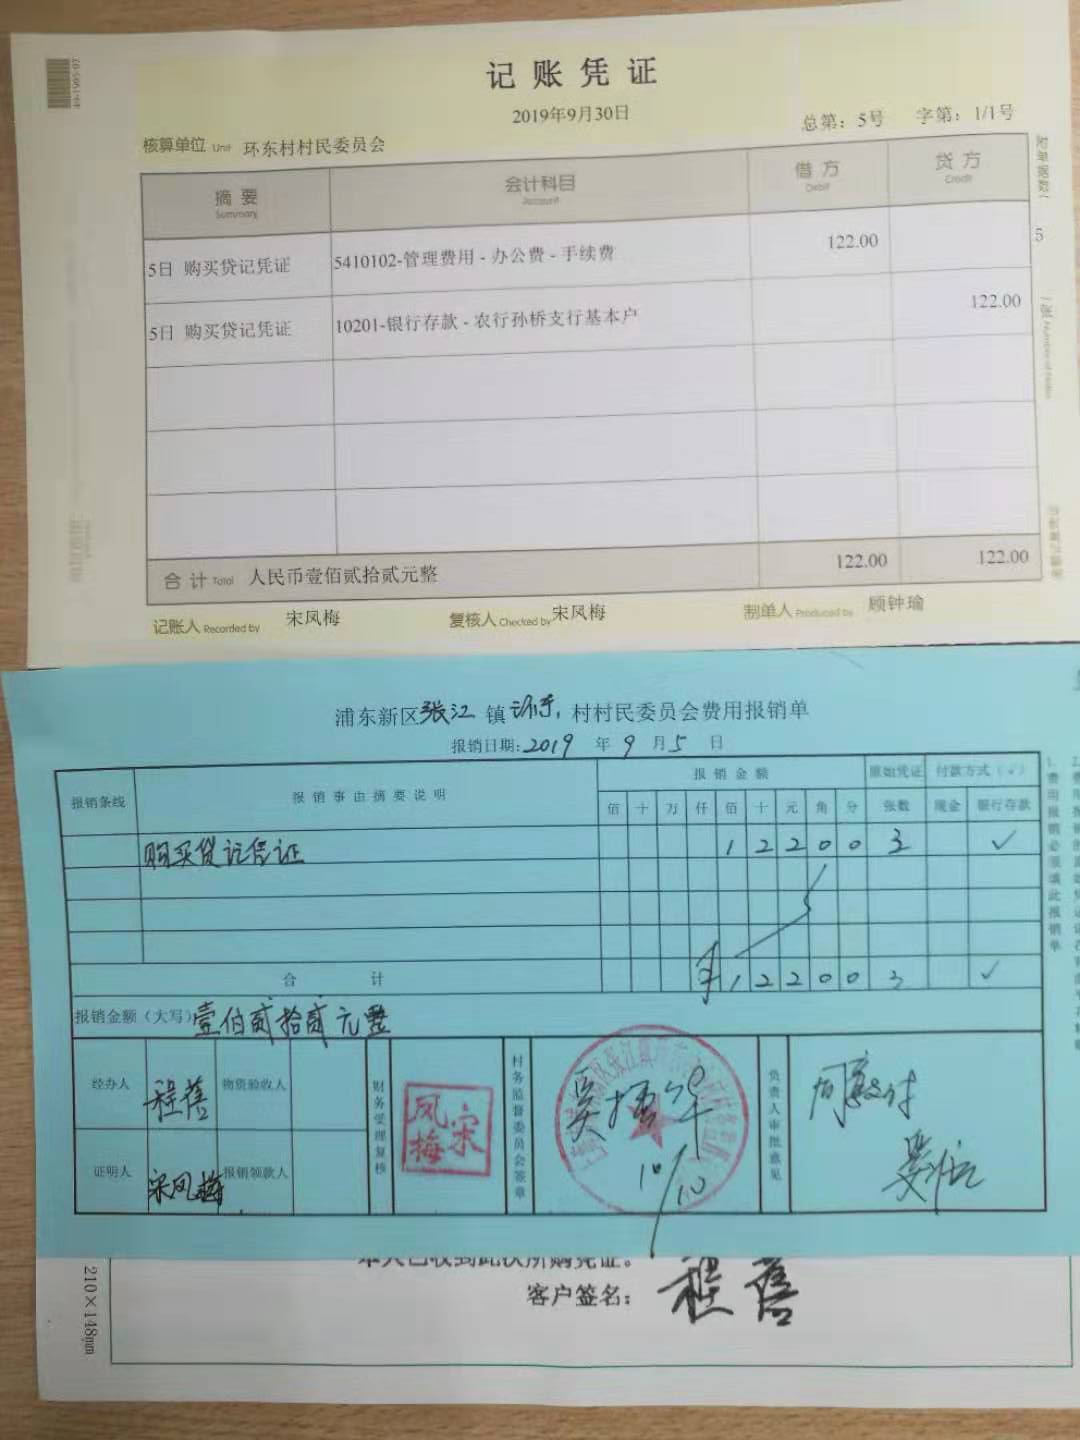 记账凭证
2019年9月30日
总第：5号 字第：1/1号
核算单位 Unit 环东村村民委员会
摘要 会计科目 借方 贷方
Summary Account Debit Credit
5日 购买贷记凭证 5410102-管理费用 - 办公费 - 手续费 122.00
5日 购买贷记凭证 10201-银行存款 - 农行孙桥支行基本户 122.00
合计 Total 人民币壹佰贰拾贰元整 122.00 122.00
记账人 Recorded by 宋凤梅 复核人 Checked by 宋凤梅 制单人 Produced by 顾钟瑜
附单据数 5 张
浦东新区张江镇环东村村民委员会费用报销单
报销日期:2019年9月5日
报销条线 报销事由摘要说明 报销金额 原始凭证 付款方式（√）
佰 十 万 仟 佰 十 元 角 分 张数 现金 银行存款
购买贷记凭证 1 2 2 0 0 3 √
合计 ¥ 1 2 2 0 0 3 √
报销金额（大写）壹佰贰拾贰元整
经办人 程蓓 物资验收人
证明人 宋凤梅 报销领款人
财务受理复核 宋凤梅
村务监督委员会签章 10/10
负责人审批意见 同意支付
本人已收到此次所购凭证。
客户签名：程蓓
210×148mm